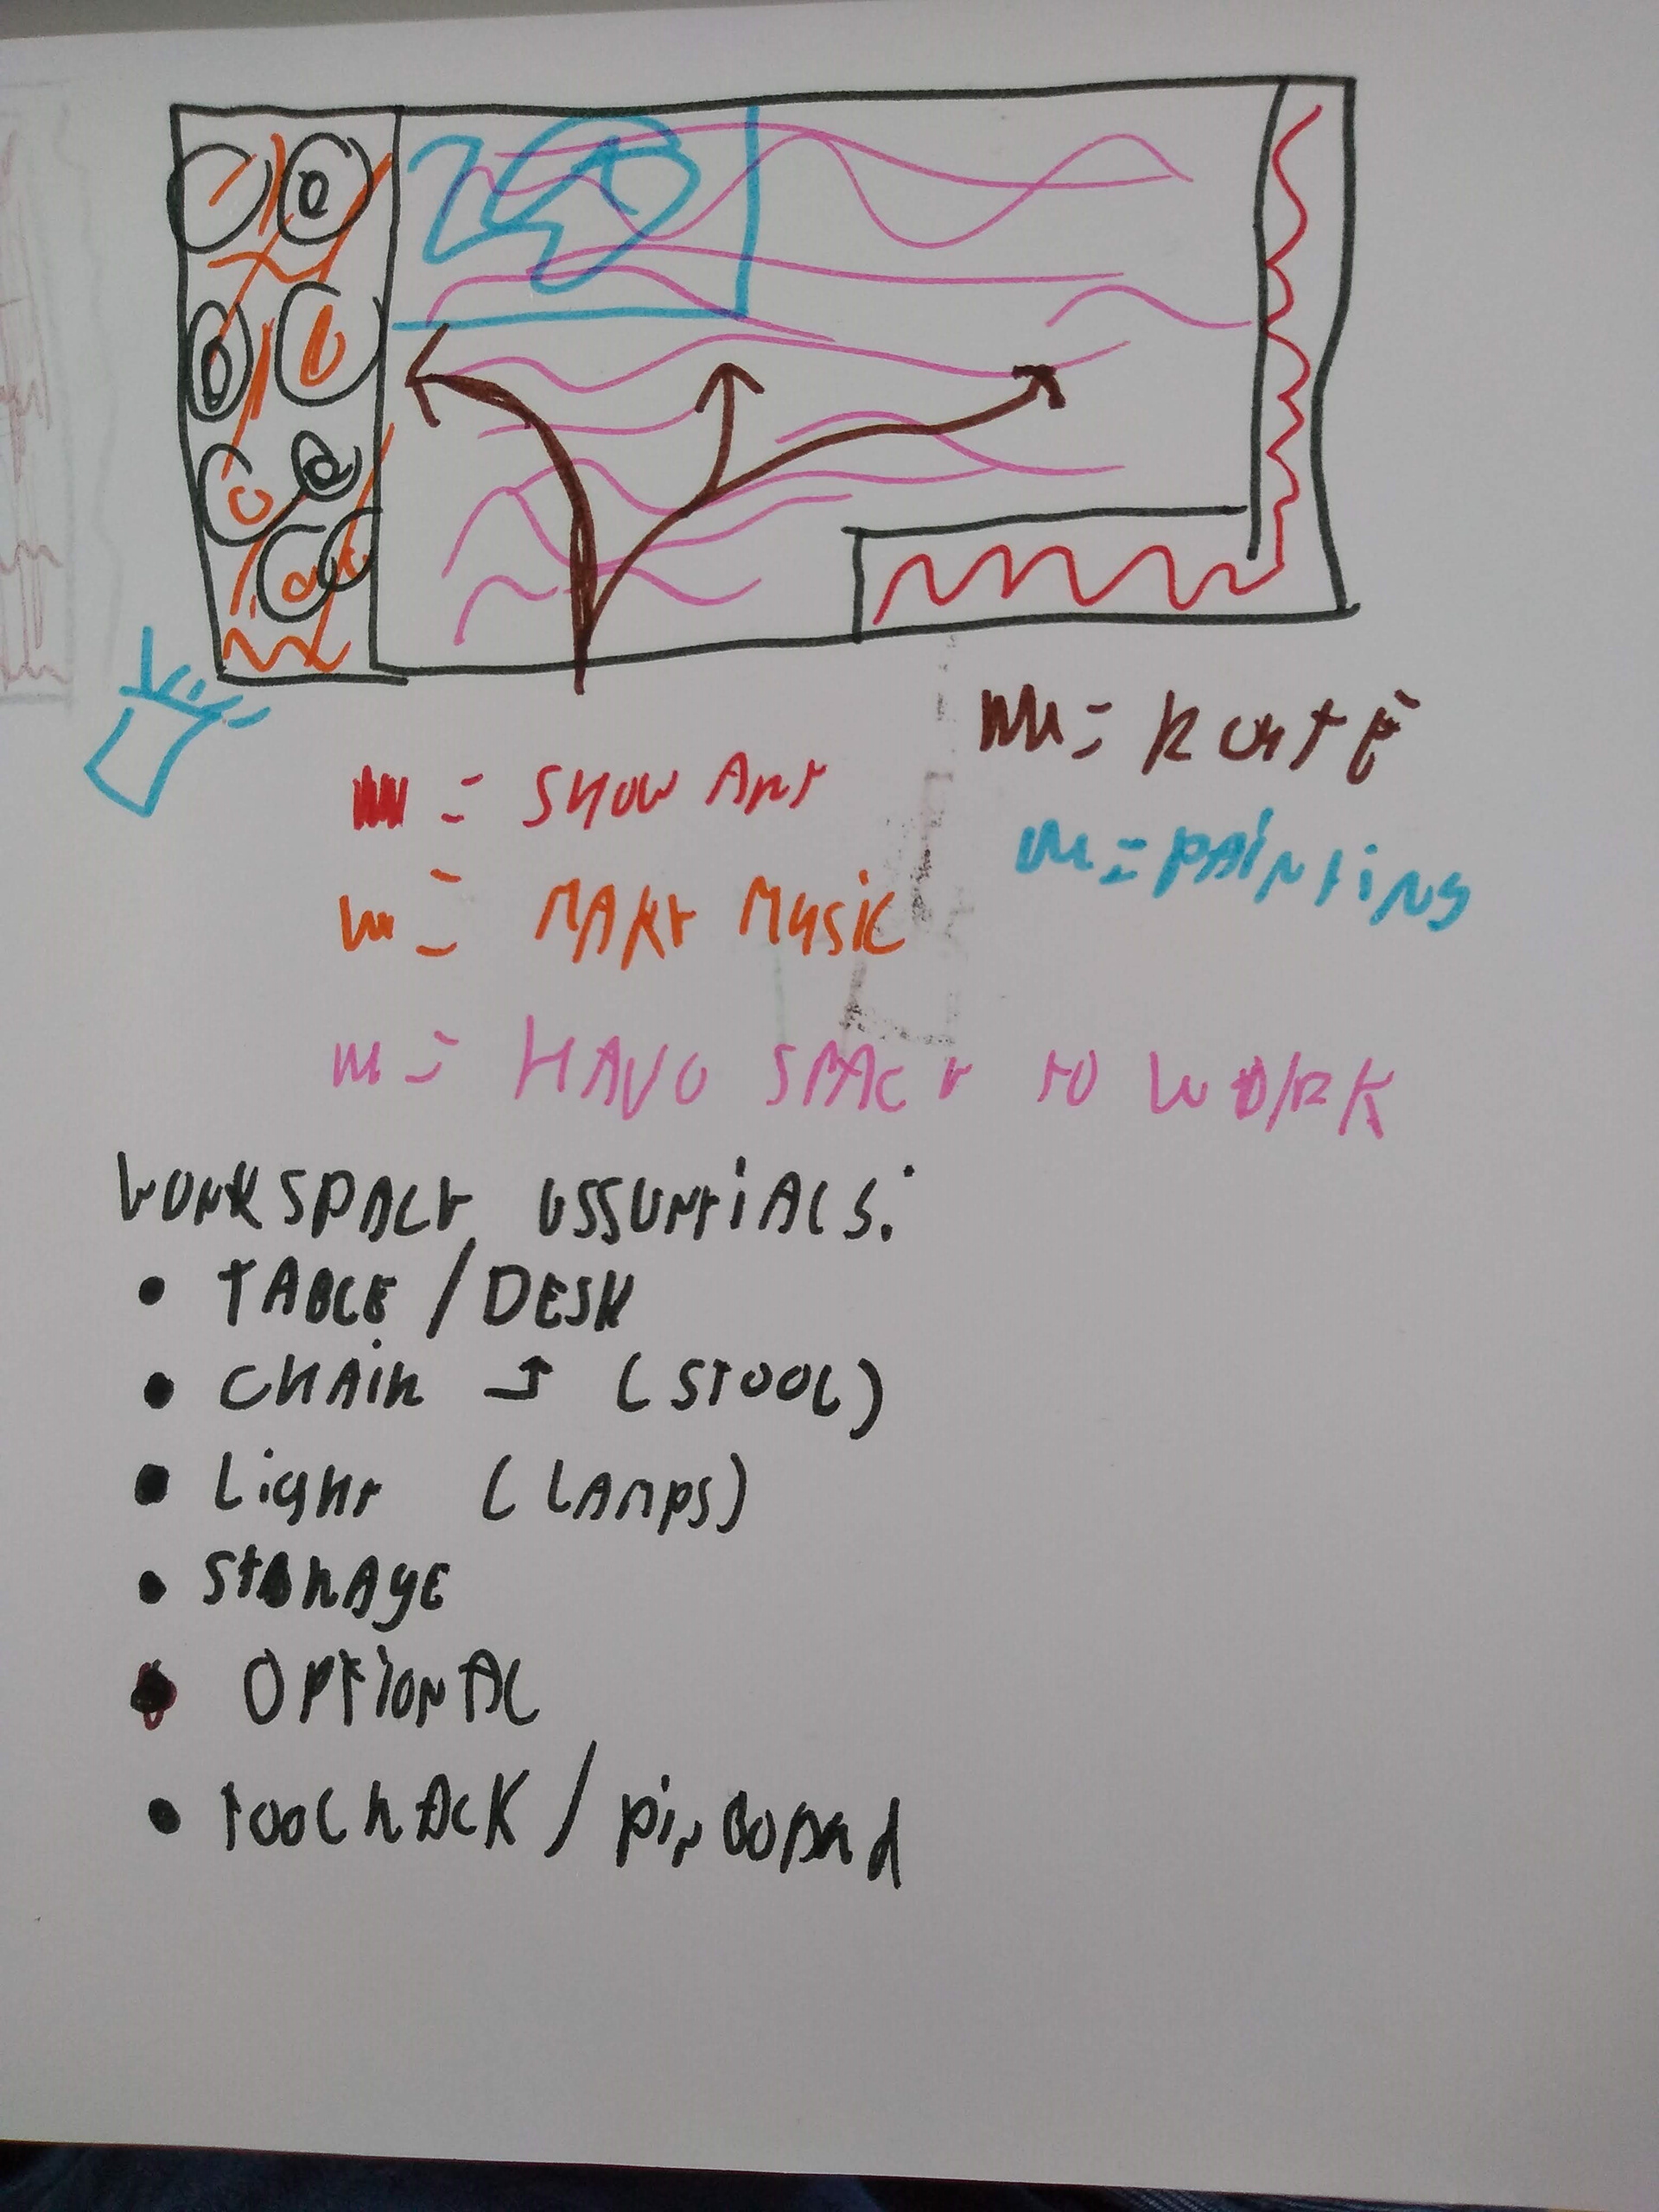 = ROUTE
= SHOW ART
= PAINTING
= MAKE MUSIC
= HAVE SPACE TO WORK
WORKSPACE ESSENTIALS:
• TABLE / DESK
• CHAIR → (STOOL)
• Light (LAMPS)
• STORAGE
• OPTIONAL
• TOOLRACK / pinBOARd